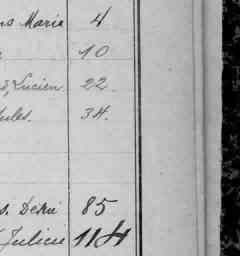 Marie 4
10
Lucien 22
Jules. 34.
s. Désiré 85
Julien 114